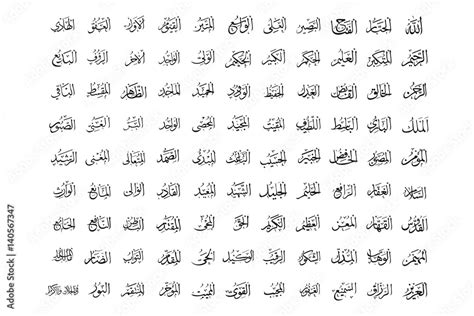 الله الجبار الفتاح البصير العلي الواسع المتين العفو الهادي
الرحيم المتكبر العليم الحكم الكبير الحكيم الولي الرؤوف البديع
الرحمن الخالق القابض العدل الحفيظ الودود الحميد الظاهر المقسط الباقي
الملك البارئ الباسط اللطيف المقيت المجيد المحصي الغني الصبور
المؤمن المصور الخافض الخبير الحسيب المبدئ الصمد المتعالي المغني الرشيد
السلام الغفار الرافع الحليم الجليل الشهيد المعيد القادر الوالي المانع الوارث
القدوس القهار المعز العظيم الكريم الحق المحيي المقتدر الباطن النافع الجامع
المهيمن الوهاب المذل الرقيب الوكيل الحي المقدم التواب الضار مالك الملك
العزيز الرزاق السميع المجيب القوي المميت المنتقم النور ذو الجلال والإكرام
Adobe Stock | #140567347